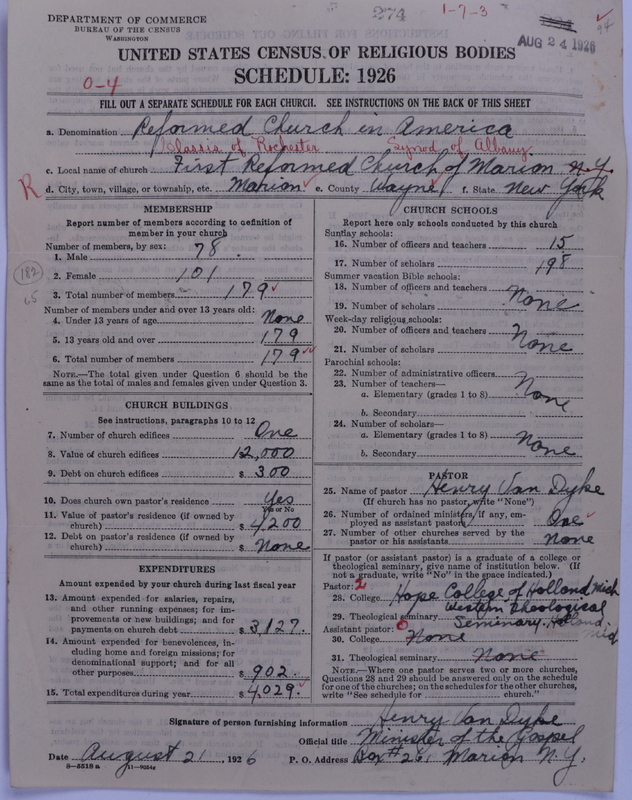 DEPARTMENT OF COMMERCE
BUREAU OF THE CENSUS
WASHINGTON
274
1-7-3
AUG 24 1926
94
UNITED STATES CENSUS OF RELIGIOUS BODIES
SCHEDULE: 1926
0-4
FILL OUT A SEPARATE SCHEDULE FOR EACH CHURCH. SEE INSTRUCTIONS ON THE BACK OF THIS SHEET
a. Denomination Reformed Church in America
Classis of Rochester Synod of Albany
c. Local name of church First Reformed Church of Marion N.Y.
R d. City, town, village, or township, etc. Marion e. County Wayne f. State New York
MEMBERSHIP
Report number of members according to definition of
member in your church
Number of members, by sex:
1. Male 78
2. Female 101
182
65
3. Total number of members 179
Number of members under and over 13 years old:
4. Under 13 years of age None
5. 13 years old and over 179
6. Total number of members 179
NOTE.—The total given under Question 6 should be
same as the total of males and females given under Question 3.
CHURCH BUILDINGS
See instructions, paragraphs 10 to 12
7. Number of church edifices One
8. Value of church edifices $ 12,000
9. Debt on church edifices $ 300
10. Does church own pastor's residence Yes
Yes or No
11. Value of pastor's residence (if owned by
church) $ 4200
12. Debt on pastor's residence (if owned by
church) $ None
EXPENDITURES
Amount expended by your church during last fiscal year
13. Amount expended for salaries, repairs,
and other running expenses; for im-
provements or new buildings; and for
payments on church debt $ 3,127.
14. Amount expended for benevolences, in-
cluding home and foreign missions; for
denominational support; and for all
other purposes $ 902.
15. Total expenditures during year $ 4,029.
CHURCH SCHOOLS
Report here only schools conducted by this church
Sunday schools:
16. Number of officers and teachers 15
17. Number of scholars 198
Summer vacation Bible schools:
18. Number of officers and teachers
19. Number of scholars None
Week-day religious schools:
20. Number of officers and teachers
21. Number of scholars None
Parochial schools:
22. Number of administrative officers
23. Number of teachers—
a. Elementary (grades 1 to 8) None
b. Secondary
24. Number of scholars—
a. Elementary (grades 1 to 8)
b. Secondary None
PASTOR
25. Name of pastor Henry Van Dyke
(If church has no pastor, write "None")
26. Number of ordained ministers, if any, em-
ployed as assistant pastor One
27. Number of other churches served by the
pastor or his assistants None
If pastor (or assistant pastor) is a graduate of a college or
theological seminary, give name of institution below. (If
not a graduate, write "No" in the space indicated.)
Pastor: 2
28. College Hope College of Holland Mich
29. Theological seminary Western Theological Seminary, Holland, Mich
Assistant pastor: 0
30. College None
31. Theological seminary None
NOTE.—Where one pastor serves two or more churches,
Questions 28 and 29 should be answered only on the schedule
for one of the churches; on the schedules for the other churches,
write "See schedule for church."
Signature of person furnishing information Henry Van Dyke
Official title Minister of the Gospel
Date August 21, 1926 P. O. Address Box #261 Marion N.Y.
8-5518 a 11-9054